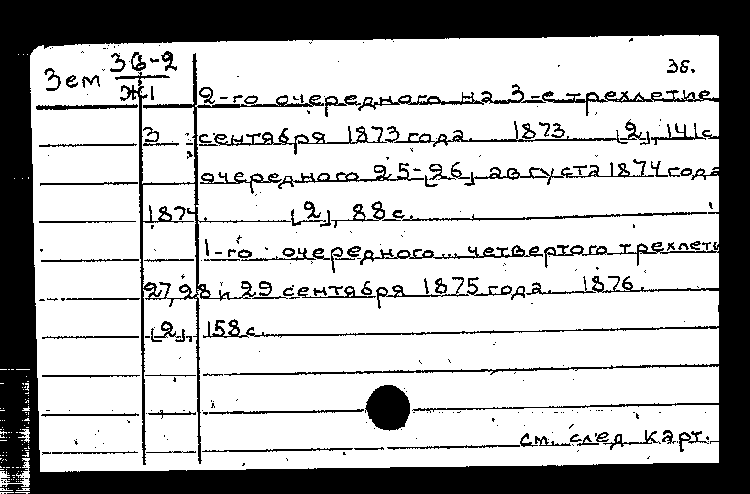 Зем 36-2
Ж1
36.
2-го очередного на 3-е трехлетие
3 сентября 1873 года. 1873. [2], 141с
очередного 25-[26] августа 1874 года
1874. [2], 88с.
1-го очередного... четвертого трехлети
27, 28 и 29 сентября 1875 года. 1876.
[2], 158с.
см. след карт.